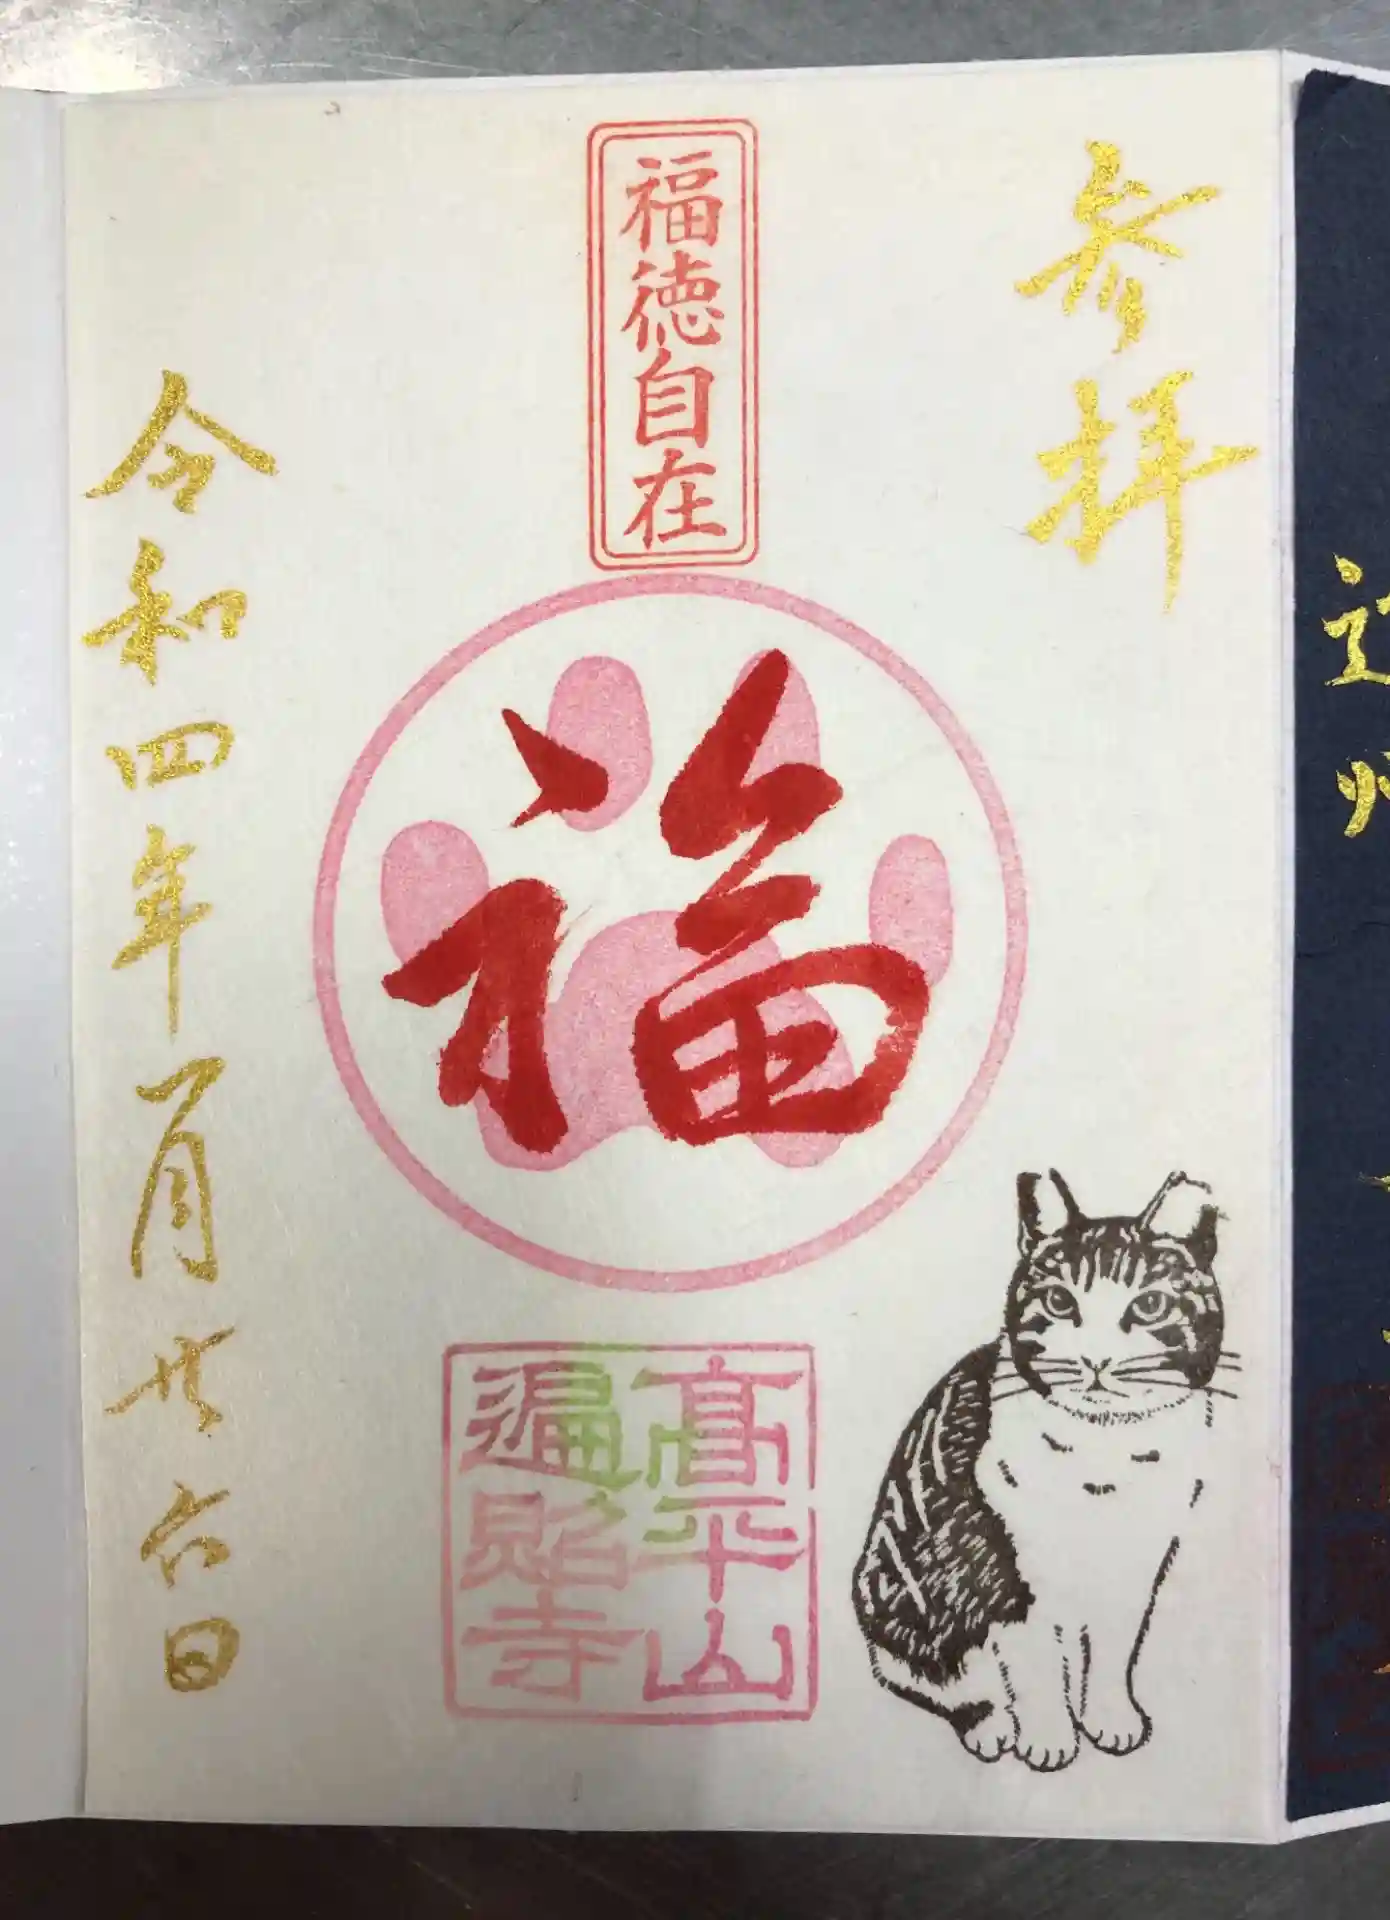 参拝
福徳自在
福
高平山
遍照寺
令和四年一月廿六日